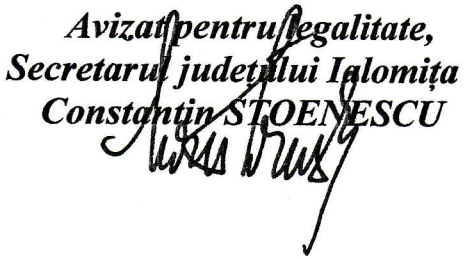 Avizat pentru legalitate,
Secretarul județului Ialomița
Constantin STOENESCU